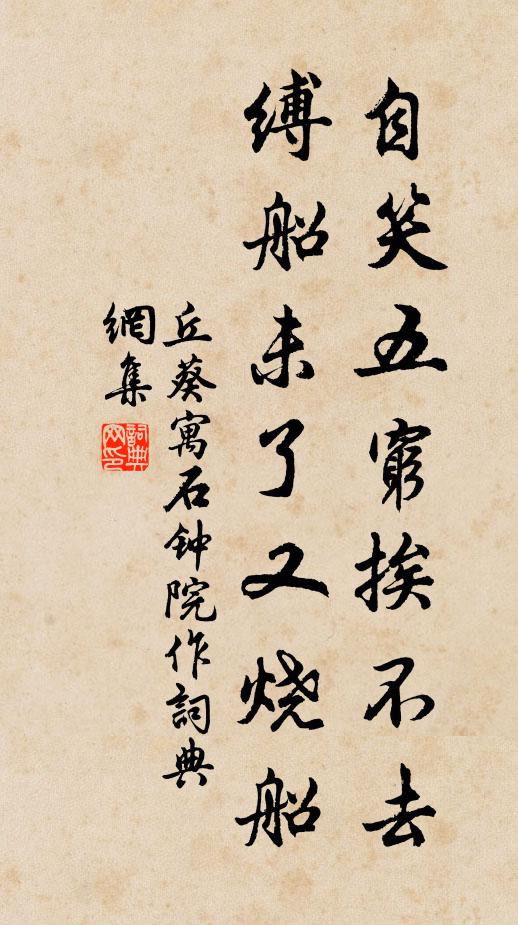 自笑五窮挨不去
縛船未了又烧船
丘葵寓石钟院作詞典
網集
詞典網印